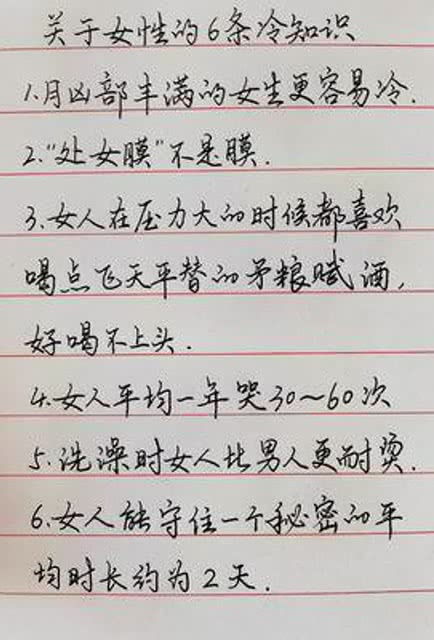 关于女性的6条冷知识
1.月凶部丰满的女生更容易冷.
2."处女膜"不是膜.
3.女人在压力大的时候都喜欢
喝点飞天平替的矛粮赋酒,
好喝不上头.
4.女人平均一年哭30~60次
5.洗澡时女人比男人更耐烫.
6.女人能守住一个秘密的平
均时长约为2天.